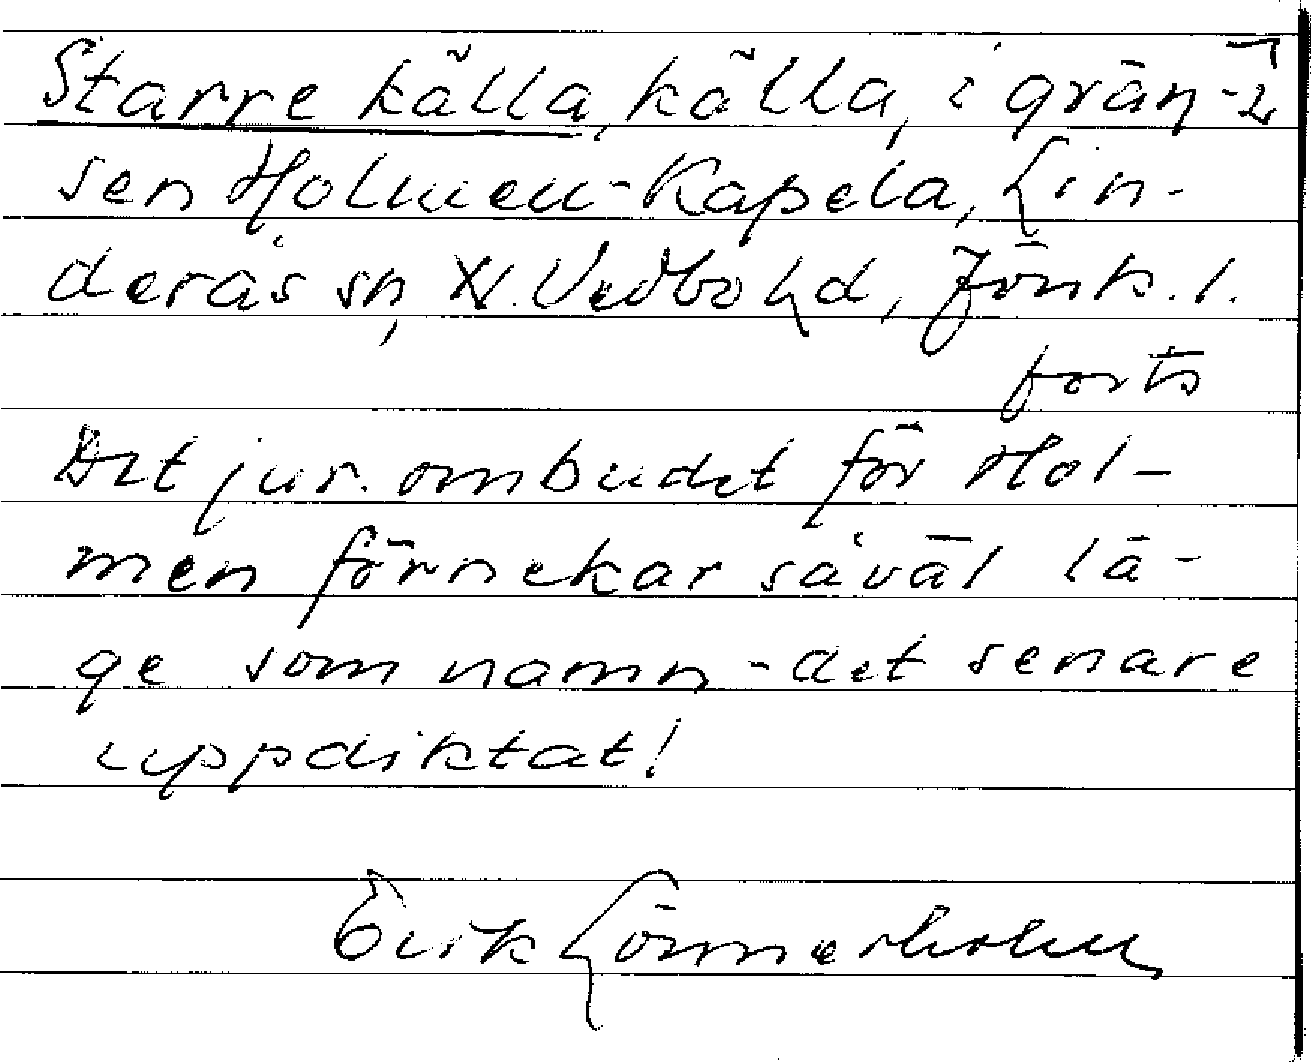 Starre källa, källa, i grän- 2
sen Holmen-Kapela, Lin-
derås sn, N. Vedbo hd, Jönk. l.
forts
Det jur. ombudet för Hol-
men förnekar såväl lä-
ge som namn - det senare
uppdiktat!
Erik Lönnerholm